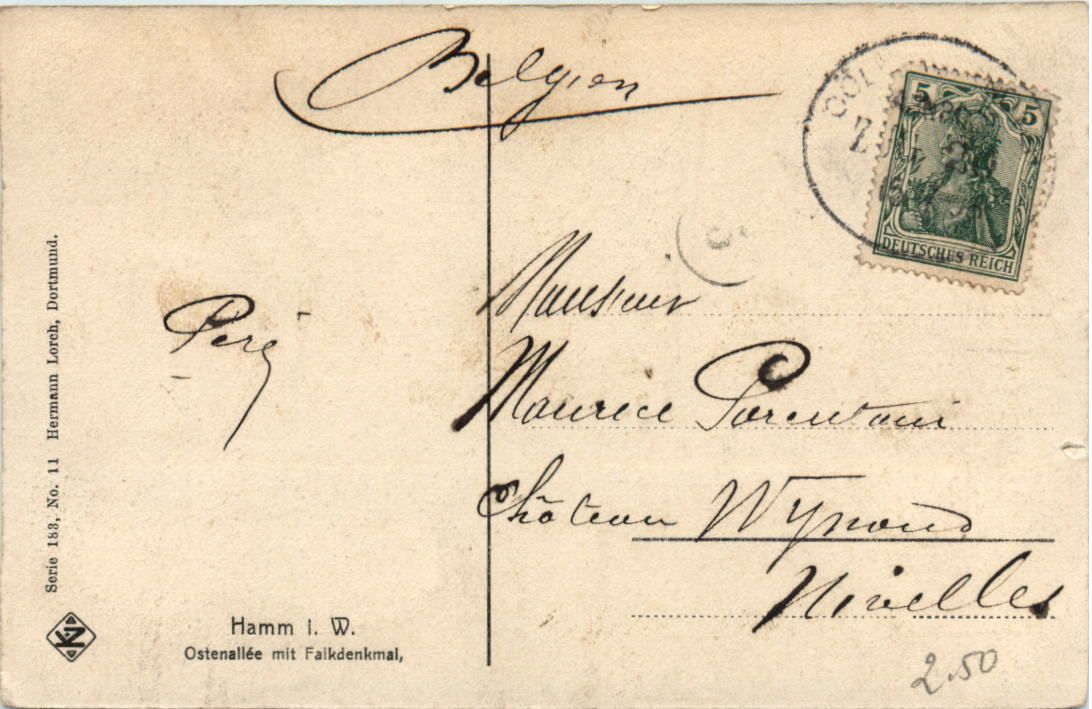 Belgien
5 5
DEUTSCHES REICH
Monsieur
Maurice
Château
Nivelles
Serie 183, No. 11 Hermann Lorch, Dortmund.
Hamm i. W.
Ostenallée mit Falkdenkmal,
2.50